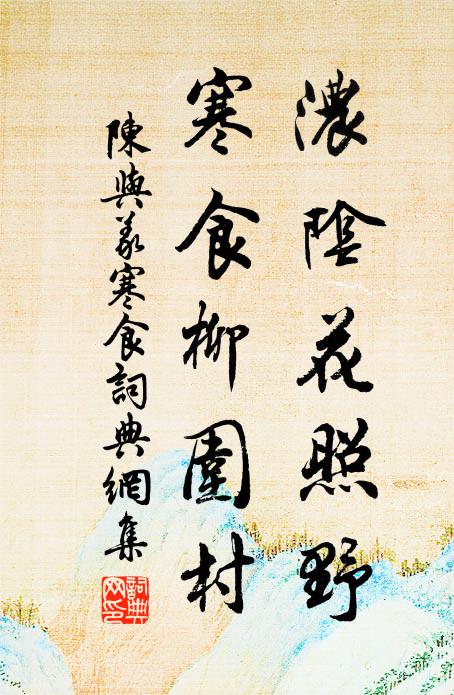 濃陰花照野
寒食柳圍村
陳與義寒食詞典網集
詞典
网色